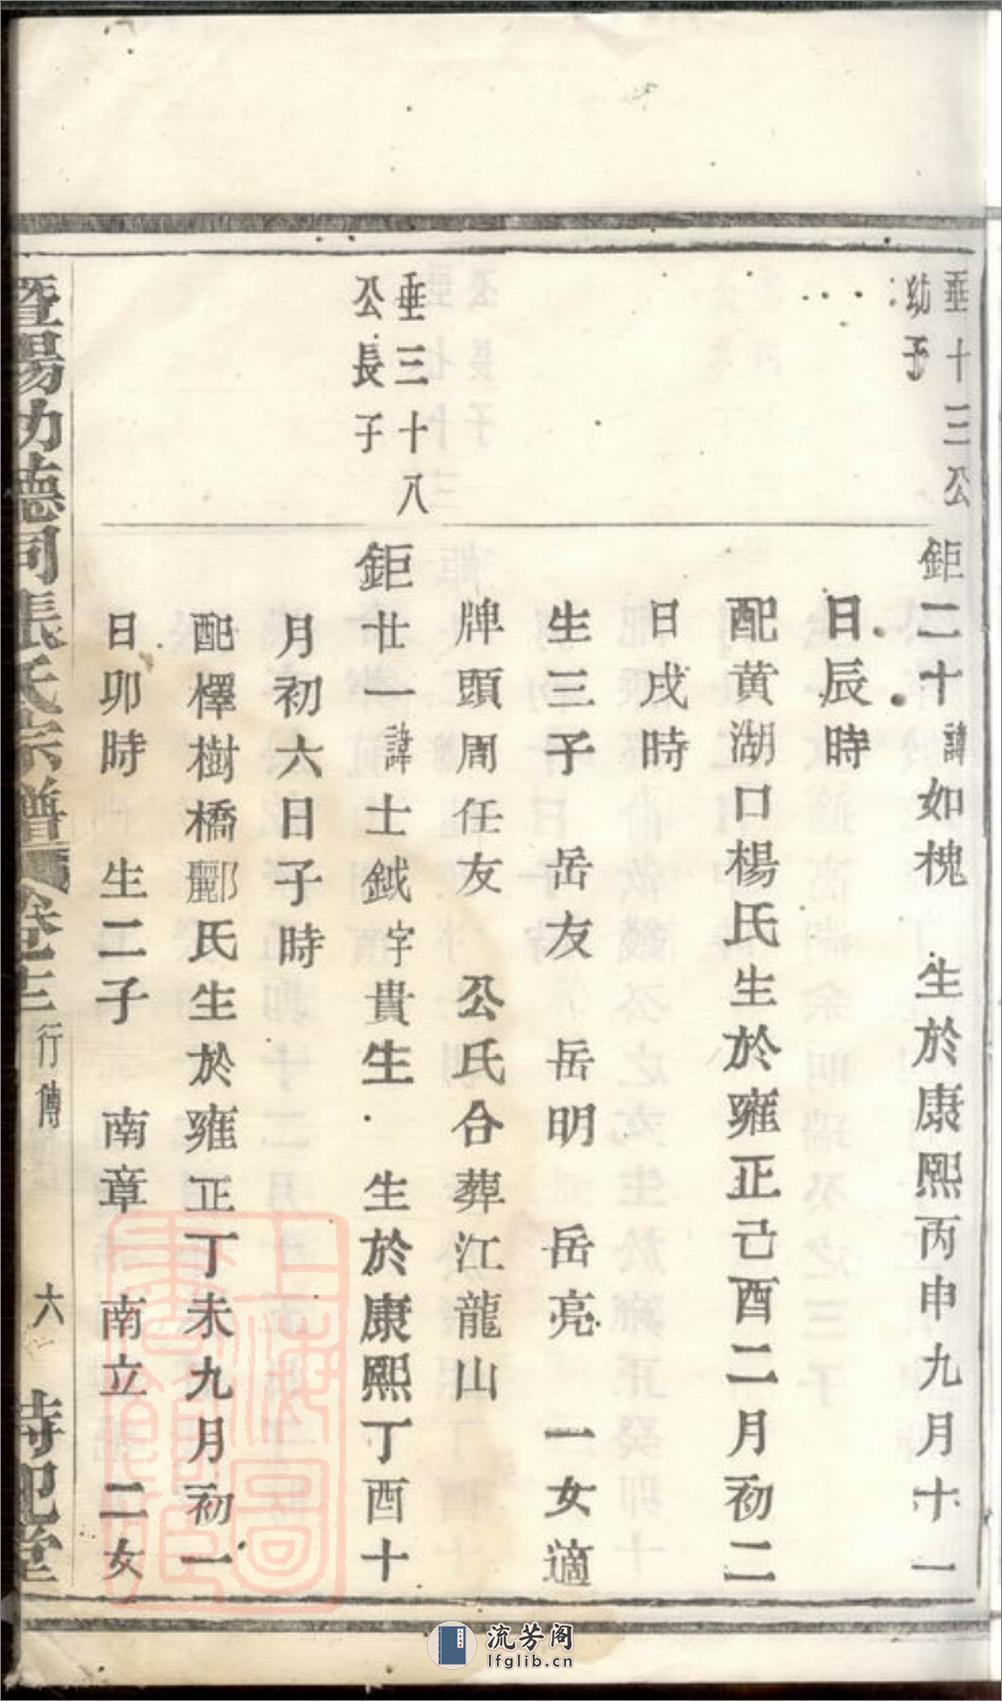 垂十三公
幼子
鉅二十諱如槐 生於康熙丙申九月十一
日辰時
配黃湖口楊氏生於雍正己酉二月初二
日戌時
生三子 岳友 岳明 岳亮 一女適
牌頭周任友 公氏合葬江龍山
垂三十八
公長子
鉅廿一諱士鉞字貴生 生於康熙丁酉十
月初六日子時
配檡樹橋酈氏生於雍正丁未九月初一
日卯時 生二子 南章 南立 二女
暨陽功德同張氏宗譜 行傳 六
上海圖書館藏
流芳阁
lfglib.cn